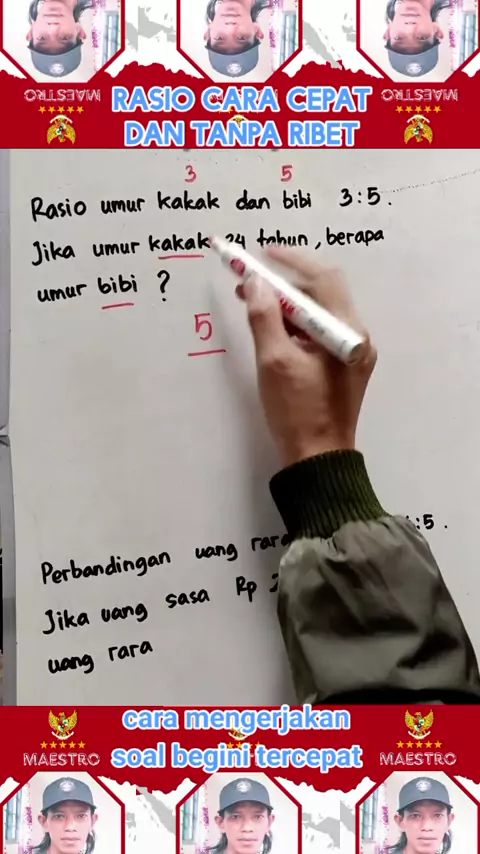 MAESTRO
MAESTRO
RASIO CARA CEPAT
DAN TANPA RIBET
3 5
Rasio umur kakak dan bibi 3:5.
Jika umur kakak 24 tahun, berapa
umur bibi ?
5
Perbandingan uang rara :5.
Jika uang sasa Rp
uang rara
cara mengerjakan
soal begini tercepat
MAESTRO
MAESTRO